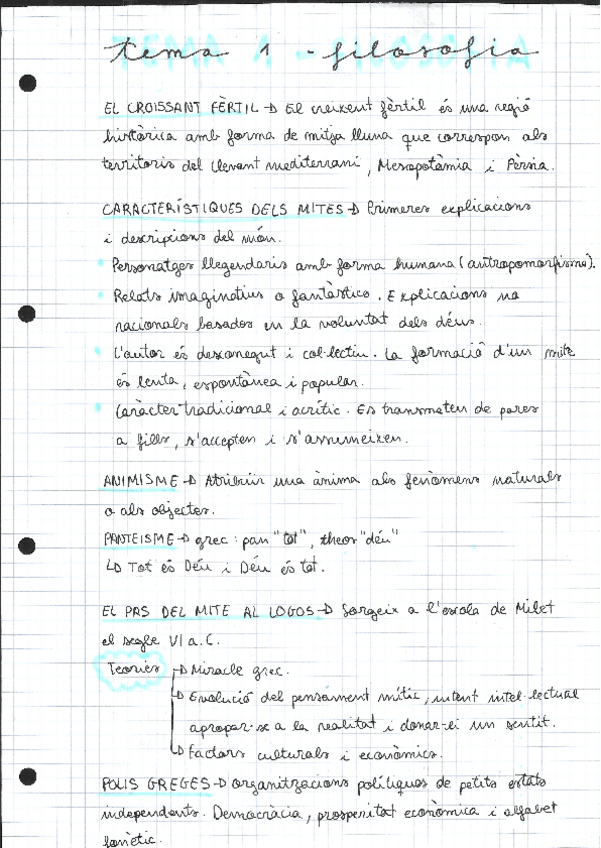 tema 1 - filosofia
EL CROISSANT FÈRTIL → El creixent fèrtil és una regió
històrica amb forma de mitja lluna que correspon als
territoris del llevant mediterrani, Mesopotàmia i Pèrsia.
CARACTERÍSTIQUES DELS MITES → Primeres explicacions
i descripcions del món.
Personatges llegendaris amb forma humana (antropomorfisme).
Relats imaginatius o fantàstics. Explicacions no
racionals basades en la voluntat dels déus.
L'autor és desconegut i col·lectiu. La formació d'un mite
és lenta, espontànea i popular.
Caràcter tradicional i acrític. Es transmeten de pares
a fills, s'accepten i s'assumeixen.
ANIMISME → Atribuir una ànima als fenòmens naturals
o als objectes.
PANTEISME → grec: pan "tot", theos "déu"
↳ Tot és Déu i Déu és tot.
EL PAS DEL MITE AL LOGOS → Sorgeix a l'escola de Milet
el segle VI a.C.
Teories → Miracle grec.
→ Evolució del pensament mític, intent intel·lectual
apropar-se a la realitat i donar-li un sentit.
→ Factors culturals i econòmics.
POLIS GREGES → organitzacions polítiques de petits estats
independents. Democràcia, prosperitat econòmica i alfabet
fonètic.